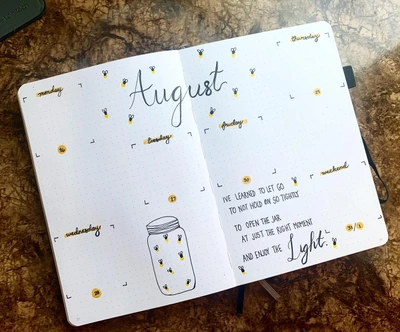 August
monday
26
tuesday
27
wednesday
28
thursday
29
friday
30
weekend
31/1
I'VE LEARNED TO LET GO
TO NOT HOLD ON SO TIGHTLY
TO OPEN THE JAR
AT JUST THE RIGHT MOMENT
AND ENJOY THE Light.